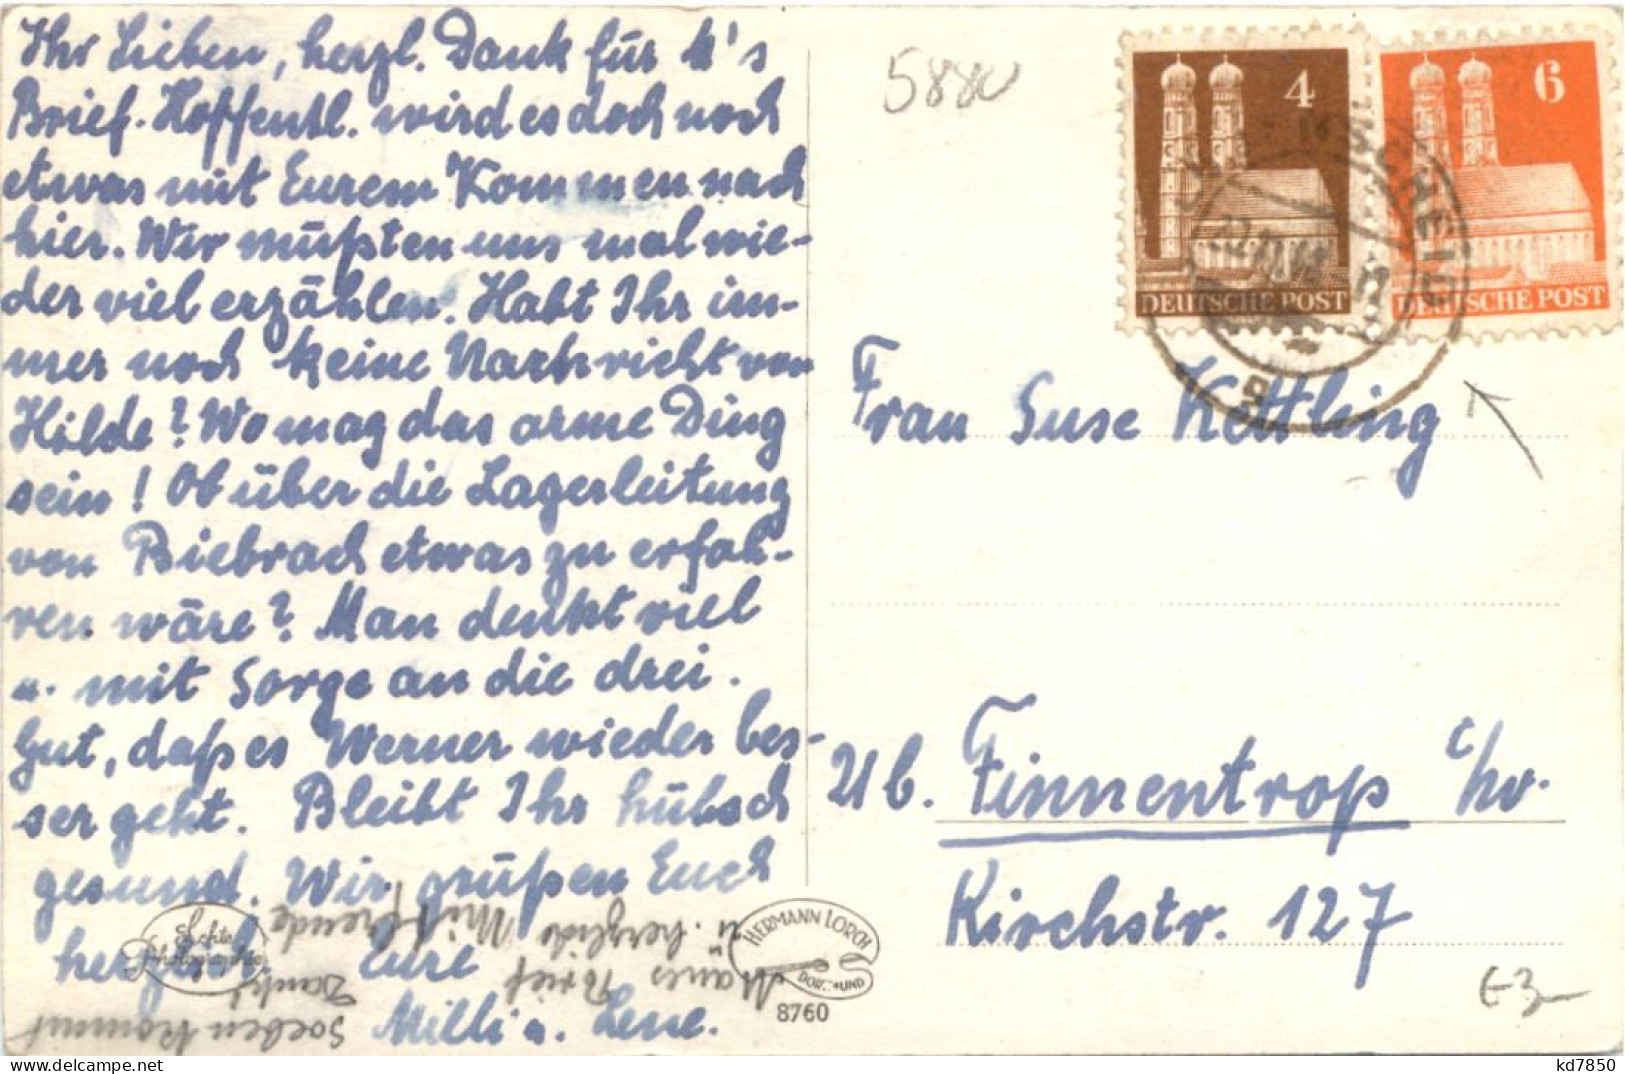 Ihr Lieben, herzl. Dank für K's
Brief. Hoffentl. wird es doch noch
etwas mit Eurem Kommen nach
hier. Wir müßten uns mal wie-
der viel erzählen. Habt Ihr im-
mer noch keine Nachricht von
Hilde? Wo mag das arme Ding
sein! Ob über die Lagerleitung
von Biebrach etwas zu erfah-
ren wäre? Man denkt viel
u. mit Sorge an die drei.
Gut, daß es Werner wieder bes-
ser geht. Bleibt Ihr hübsch
gesund. Wir grüßen Euch
herzlich Eure
Milli u. Lene.
Soeben kommt
Brief
Dank!
u. herzlich Mitfreude
Echte
Photographie
HERMANN LORCH
DORTMUND
8760
5880
4
DEUTSCHE POST
6
DEUTSCHE POST
Frau Suse Kettling
21b. Finnentrop i/W.
Kirchstr. 127
€3
kd7850